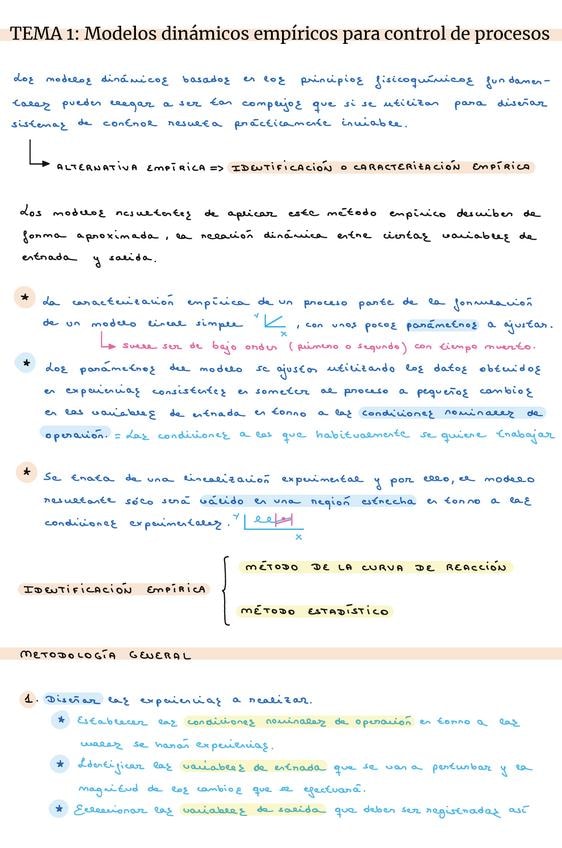 TEMA 1: Modelos dinámicos empíricos para control de procesos
Los modelos dinámicos basados en los principios fisicoquímicos fundamen-
tales pueden llegar a ser tan complejos que si se utilizan para diseñar
sistemas de control resulta prácticamente inviable.
ALTERNATIVA EMPÍRICA => IDENTIFICACIÓN O CARACTERIZACIÓN EMPÍRICA
Los modelos resultantes de aplicar este método empírico describen de
forma aproximada, la relación dinámica entre ciertas variables de
entrada y salida.
* La caracterización empírica de un proceso parte de la formulación
de un modelo lineal simple Y X, con unos pocos parámetros a ajustar.
suele ser de bajo orden (primero o segundo) con tiempo muerto.
* Los parámetros del modelo se ajustan utilizando los datos obtenidos
en experiencias consistentes en someter al proceso a pequeños cambios
en las variables de entrada en torno a las condiciones nominales de
operación. = Las condiciones a las que habitualmente se quiere trabajar
* Se trata de una linealización experimental y por ello, el modelo
resultante sólo será válido en una región estrecha en torno a las
condiciones experimentales. Y X
IDENTIFICACIÓN EMPÍRICA
MÉTODO DE LA CURVA DE REACCIÓN
MÉTODO ESTADÍSTICO
METODOLOGÍA GENERAL
1. Diseñar las experiencias a realizar.
* Establecer las condiciones nominales de operación en torno a las
cuales se harán experiencias.
* Identificar las variables de entrada que se van a perturbar y la
magnitud de los cambios que se efectuará.
* Seleccionar las variables de salida que deben ser registradas así